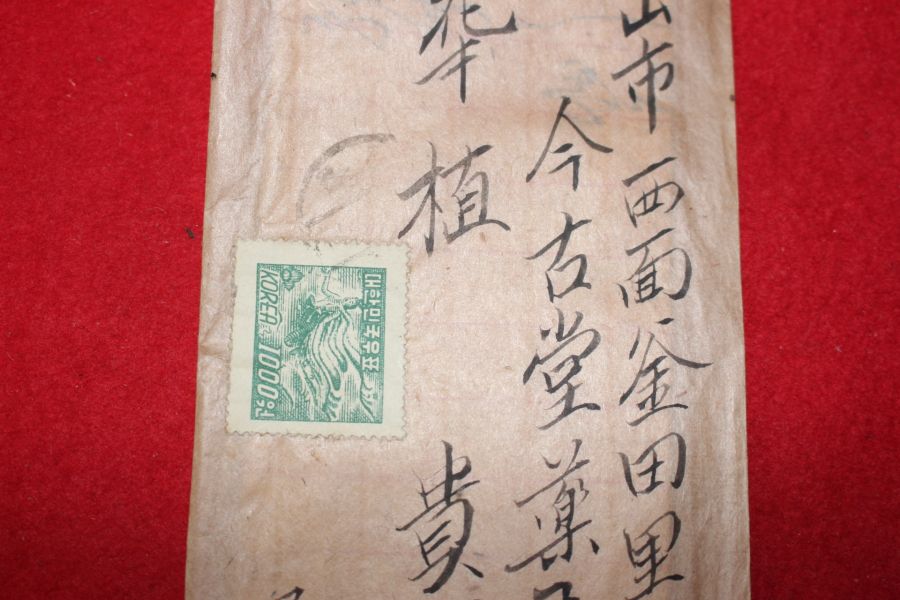 山市 西面 釜田里
今古堂藥
植 貴
대한민국우표
KOREA
1000원